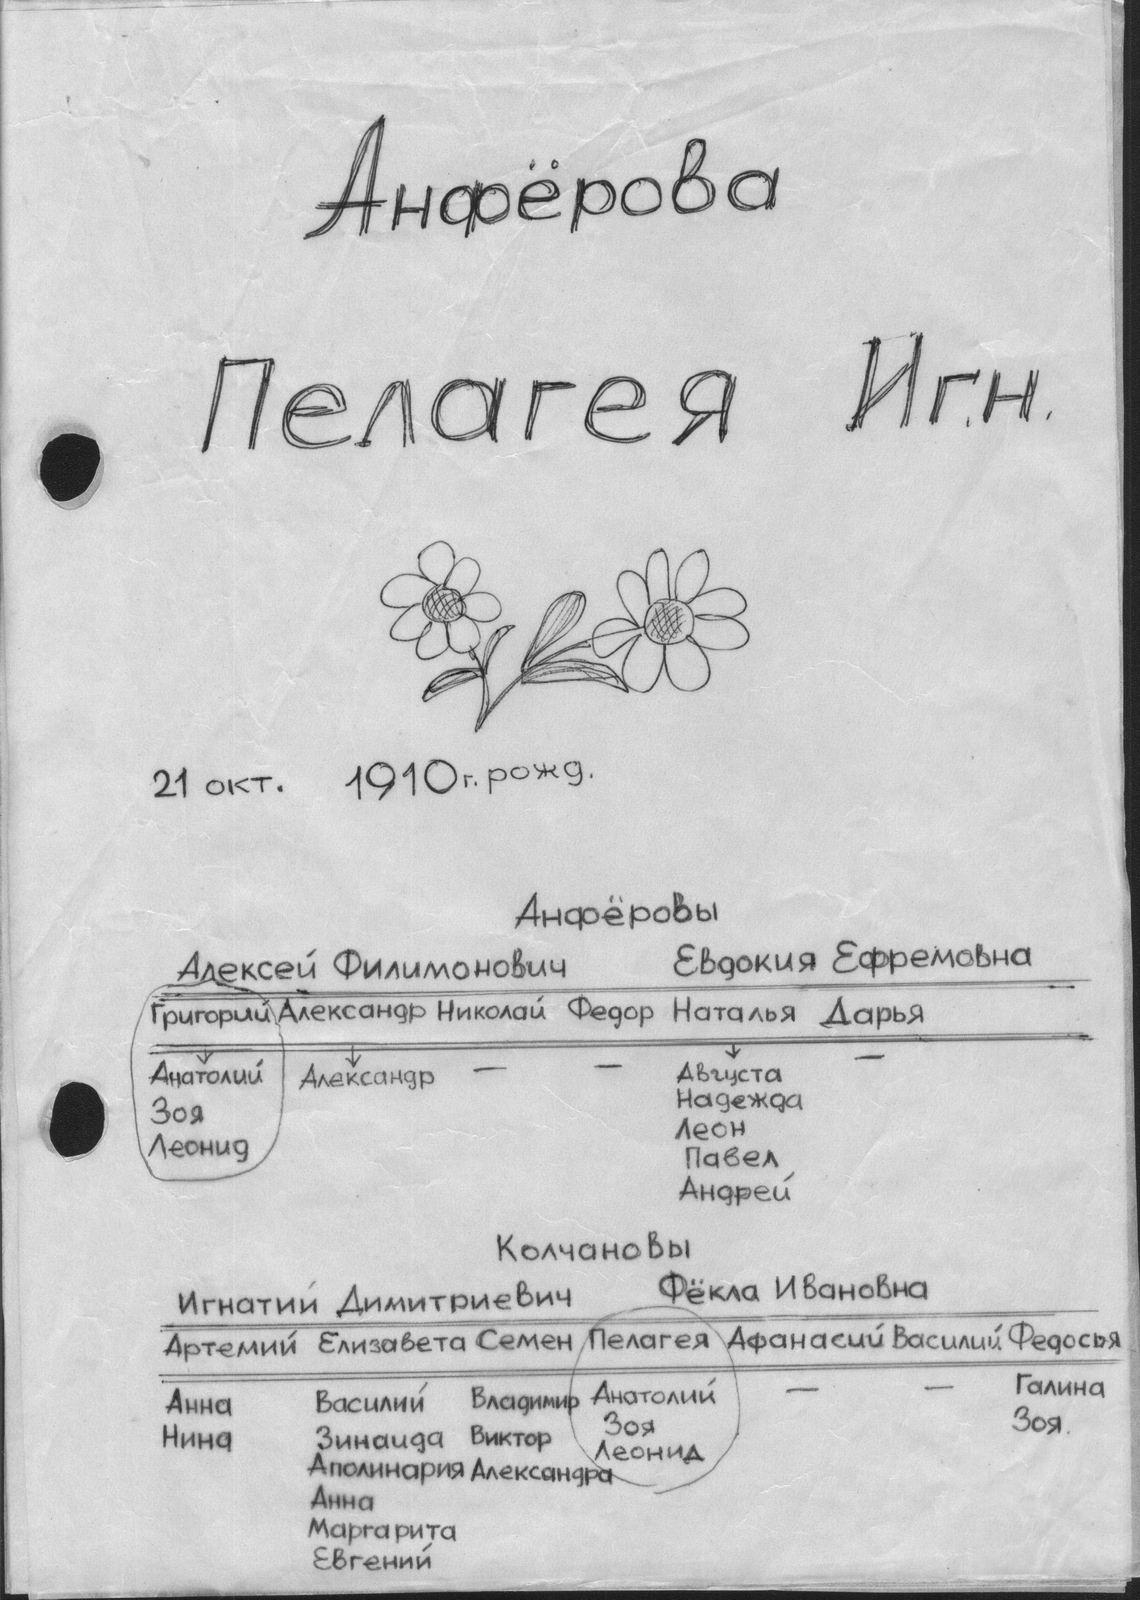 Анфёрова
Пелагея Игн.
21 окт. 1910 г. рожд.
Анфёровы
Алексей Филимонович Евдокия Ефремовна
Григорий Александр Николай Федор Наталья Дарья
Анатолий Александр — — Августа —
Зоя Надежда
Леонид Леон
Павел
Андрей
Колчановы
Игнатий Димитриевич Фёкла Ивановна
Артемий Елизавета Семен Пелагея Афанасий Василий Федосья
Анна Василий Владимир Анатолий — — Галина
Нина Зинаида Виктор Зоя Зоя.
Аполинария Александра Леонид
Анна
Маргарита
Евгений